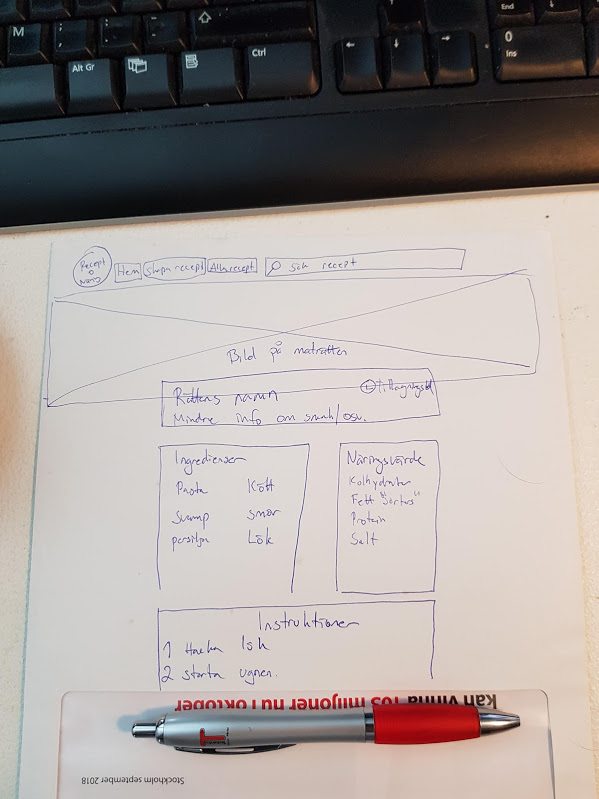 End
M ; : _
Alt Gr
Ctrl
0
Ins
Recept
Hem
Skapa recept
Alla recept
Sök recept
Bild på maträtten
Rättens namn
Tillagningstid
Mindre info om smak/osv.
Ingredienser
Pasta Kött
Svamp smör
persilja Lök
Näringsvärde
Kolhydrater
Fett "Sorters"
Protein
Salt
Instruktioner
1 Hacka lök
2 starta ugnen.
kan vinna 105 miljoner nu i oktober
Stockholm september 2018